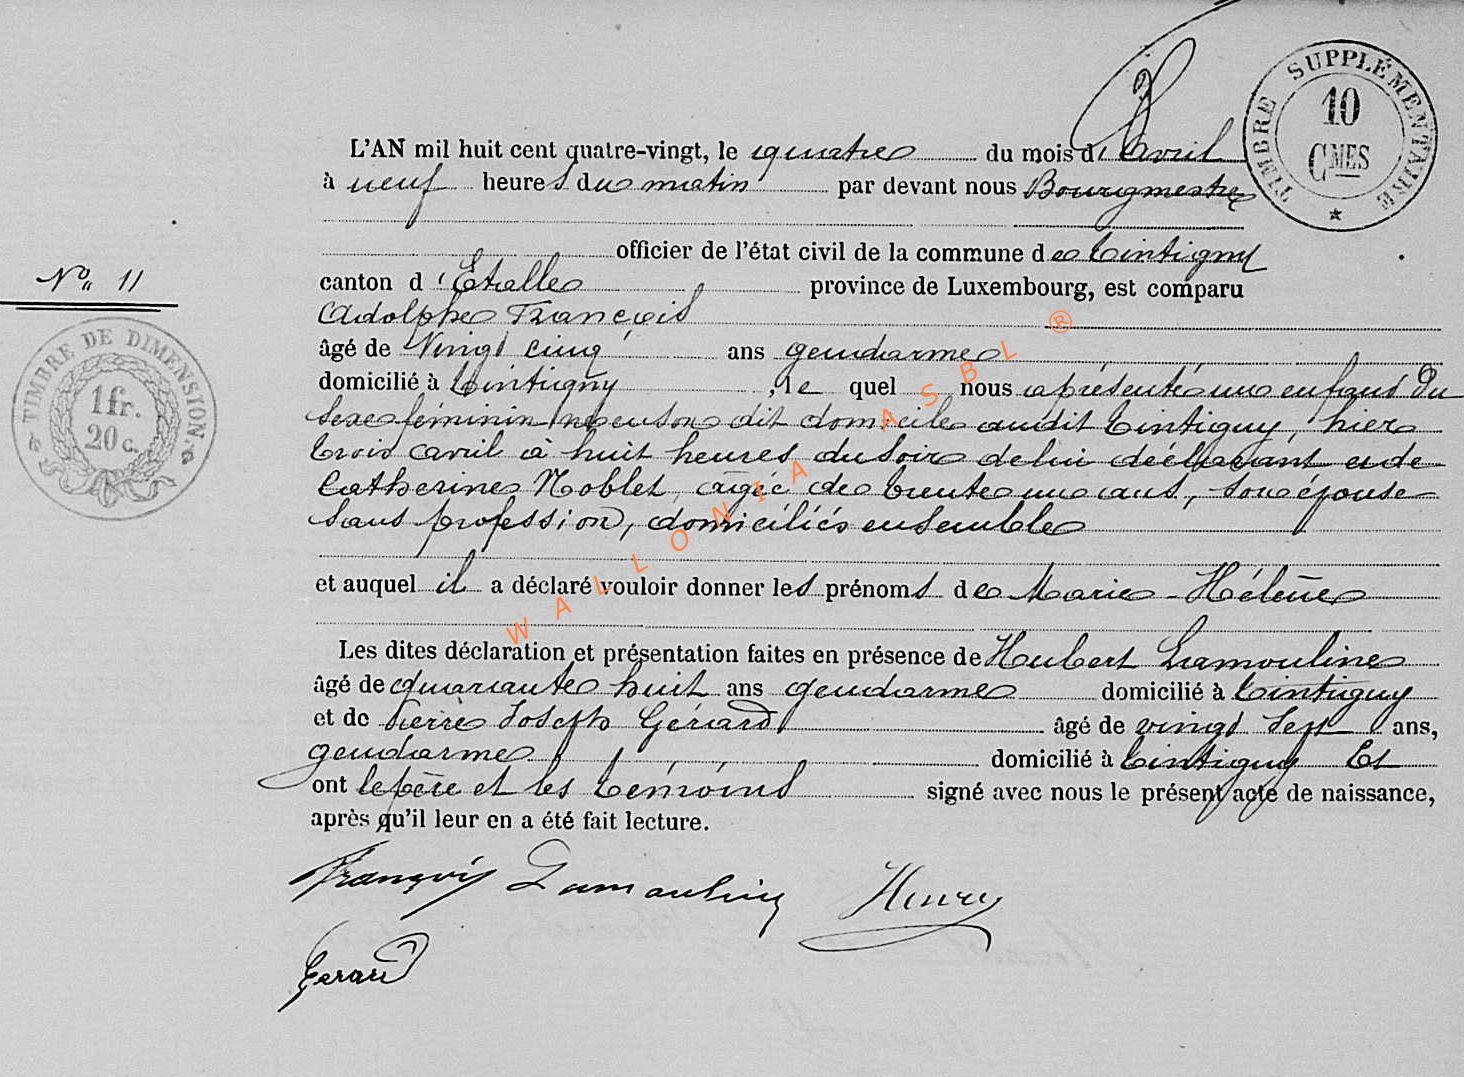 TIMBRE SUPPLÉMENTAIRE
10
CMES
L'AN mil huit cent quatre-vingt, le quatre du mois d'Avril
à neuf heures du matin par devant nous Bourgmestre
officier de l'état civil de la commune de Tintigny
No 11
canton d'Etalle province de Luxembourg, est comparu
Adolphe François
TIMBRE DE DIMENSION.
1 fr.
20 c.
âgé de Vingt cinq ans gendarme
domicilié à Tintigny, le quel nous a présenté un enfant du
sexe féminin né en son dit domicile audit Tintigny, hier
trois avril à huit heures du soir de lui déclarant et de
Catherine Noblet, âgée de trente un ans, son épouse
sans profession, domiciliés ensemble
et auquel il a déclaré vouloir donner les prénoms de Marie-Hélène
Les dites déclaration et présentation faites en présence de Hubert Lamouline
âgé de quarante huit ans gendarme domicilié à Tintigny
et de Pierre Joseph Gérard âgé de vingt sept ans,
gendarme domicilié à Tintigny Et
ont le père et les témoins signé avec nous le présent acte de naissance,
après qu'il leur en a été fait lecture.
François Lamouline Henry
Gerard
WALLONIA ASBL ®